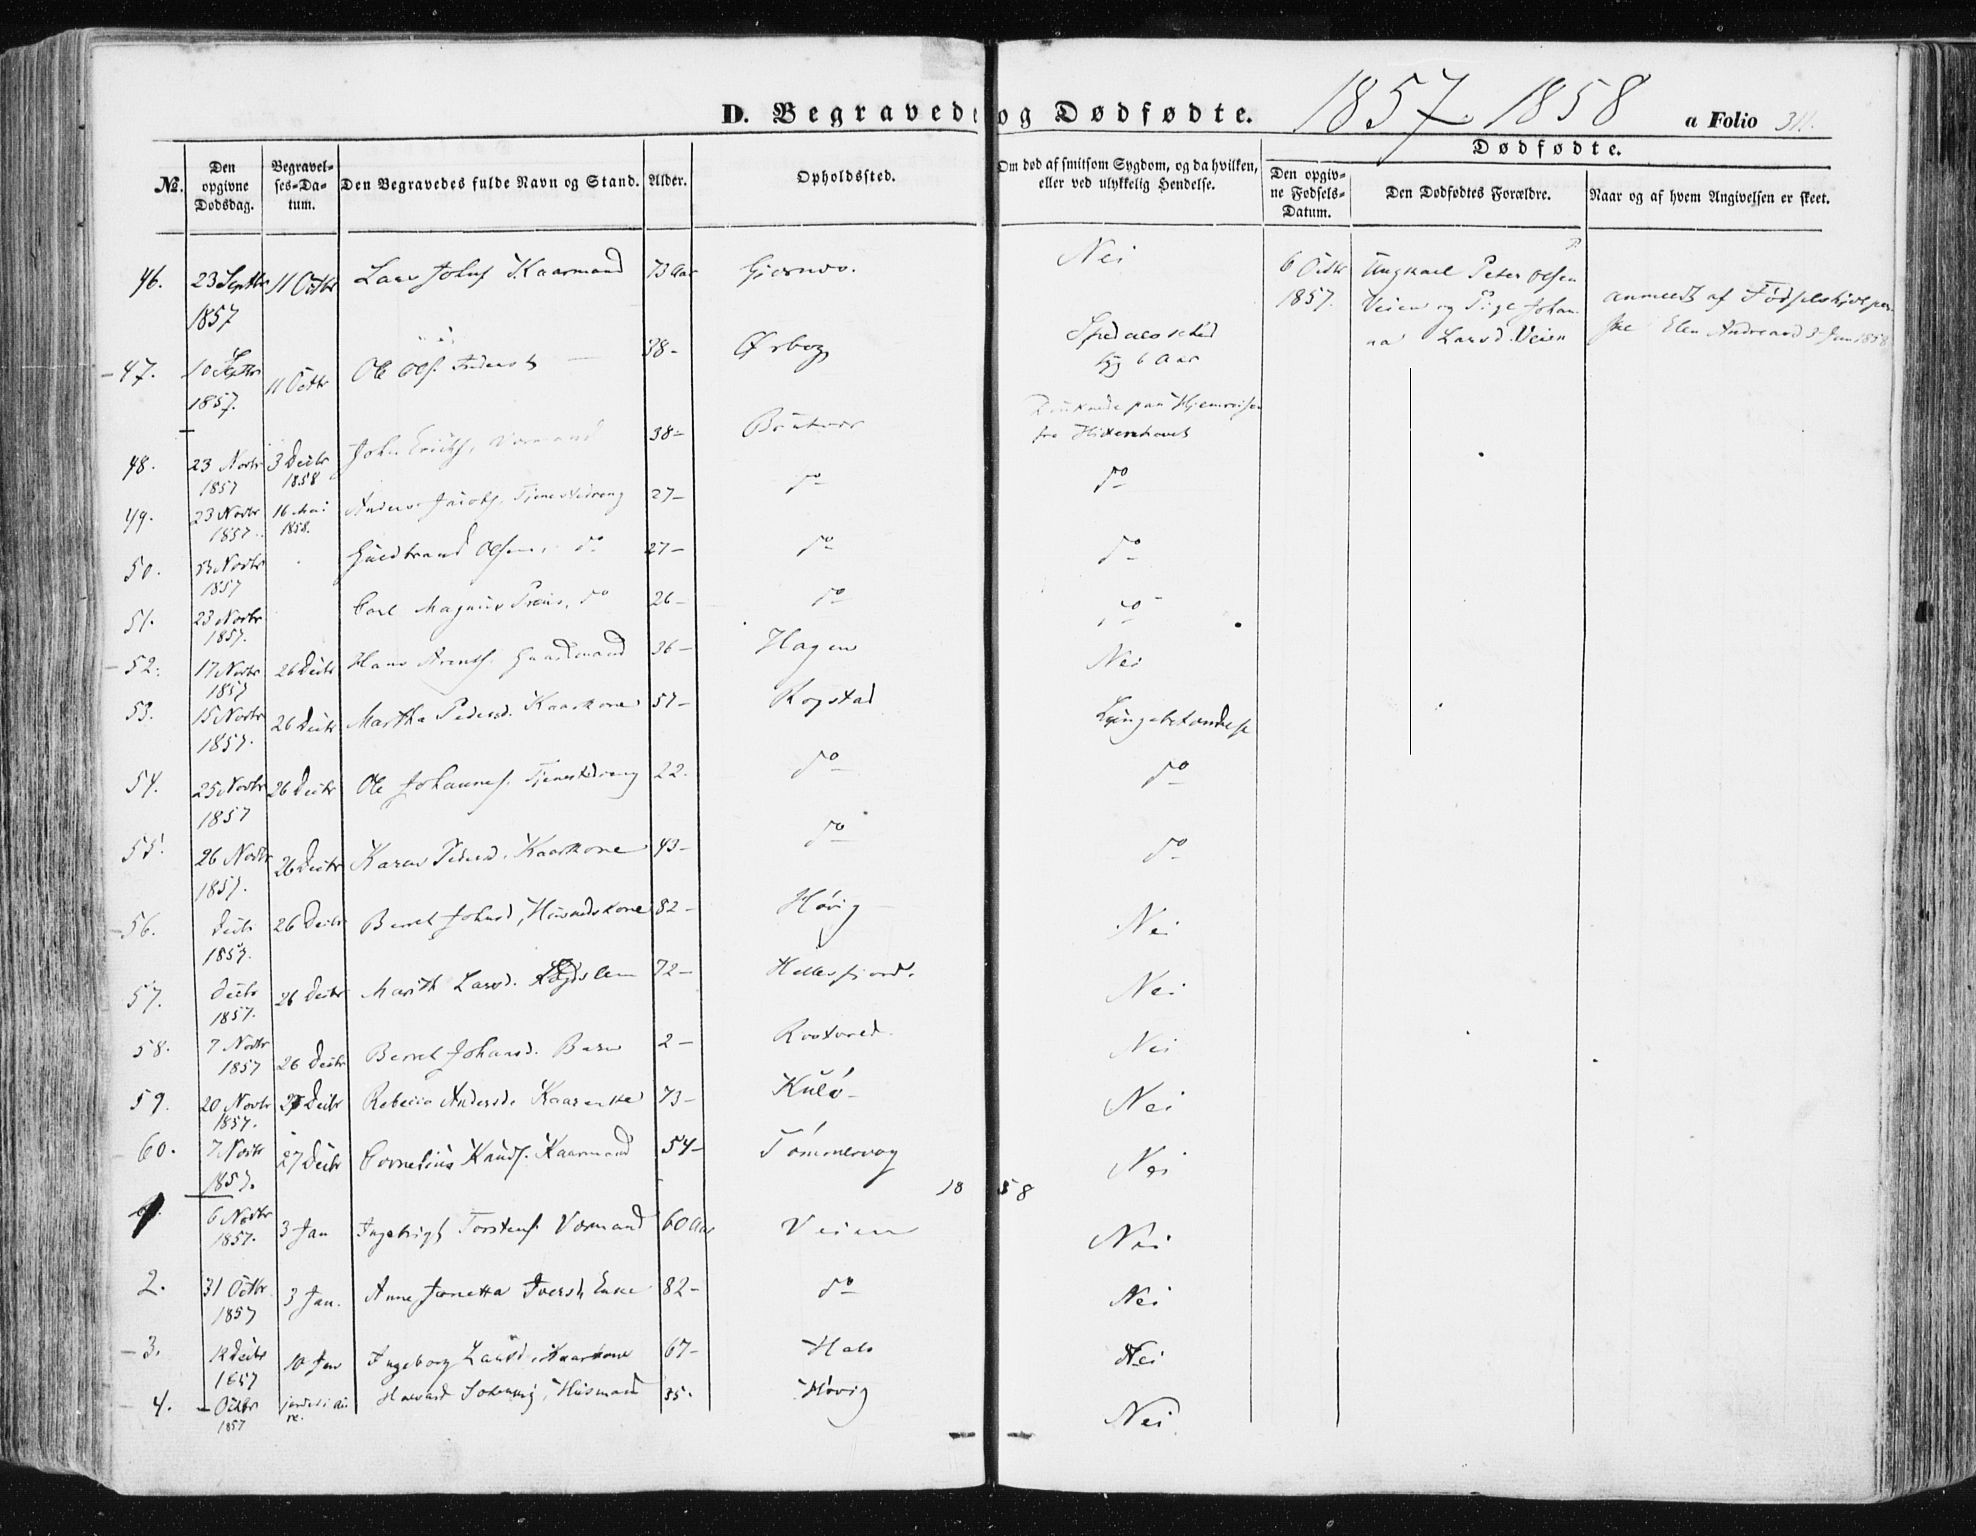 D. Begravede og Dødfødte. 1857. 1858 a Folio 311.
Dødfødte.
No. Den opgivne Dødsdag. Begravelses-Datum. Den Begravedes fulde Navn og Stand. Alder. Opholdssted. Om død af smitsom Sygdom, og da hvilken, eller ved ulykkelig Hendelse. Den opgivne Fødsels-Datum. Den Dødfødtes Forældre. Naar og af hvem Angivelsen er skeet.
46. 23 Septbr 1857 11 Octbr Lars Johns. Kaarmand 73 Aar Nei
6 Octbr 1857. Ungkarl Peter Olsen Veien og Pige Johanna Larsd. Veien
anmeldt af Fødselshjelperske Elen 3 Jan 1858
47. 10 Septbr 1857. 11 Octbr Ole Ols. 38- Ørbog Spedalsched syg 6 Aar
48. 23 Novbr 1857 3 Decbr 1858 John Ericks. 38- Druknede paa Hjemreisen fra
49. 23 Novbr 1857. 16 Mai 1858. Anders Jacobs. Tjenestedreng 27- do do
50. 23 Novbr 1857 Guldbrand Olsen, do 27- do do
51. 23 Novbr 1857. Carl Magnus do 26- do do
52. 17 Novbr 1857 26 Decbr Hans Arents. Gaardmand 36- Hagen Nei
53. 15 Novbr 1857. 26 Decbr Martha Pedersd. Kaarkone 57- Rogstad Lungebetændelse
54. 25 Novbr 1857 26 Decbr Ole Johannes. Tjenestedreng 22. do do
55. 26 Novbr 1857. 26 Decbr Karen Pedersd. Kaarkone 43- do do
56. Decbr 1857. 26 Decbr Berret Johnsd, Huusmdskone 82- Høvig Nei
57. Decbr 1857. 26 Decbr Marith Larsd. Lægdslem 72- Hellesfjord. Nei
58. 7 Novbr 1857 26 Decbr Berret Johansd. Barn 2- Nei
59. 20 Novbr 1857. 27 Decbr Rebecca Andersd. Kaarenke 73- Kulø- Nei
60. 7 Novbr 1857. 27 Decbr Cornelius Knuds. Kaarmand 54- Tømmervog Nei
1858
1. 6 Novbr 1857. 3 Jan Ingebrigt Torstens. 60 Aar Veien Nei
2. 31 Octbr 1857 3 Jan. Anne Jonetta Iversd. Enke 82- do Nei
3. 12 Decbr 1857 10 Jan Ingeborg Larsd. Kaarkone 67- Hals Nei
4. - Octbr 1857 Havard Huusmand 35. Høvig Nei.